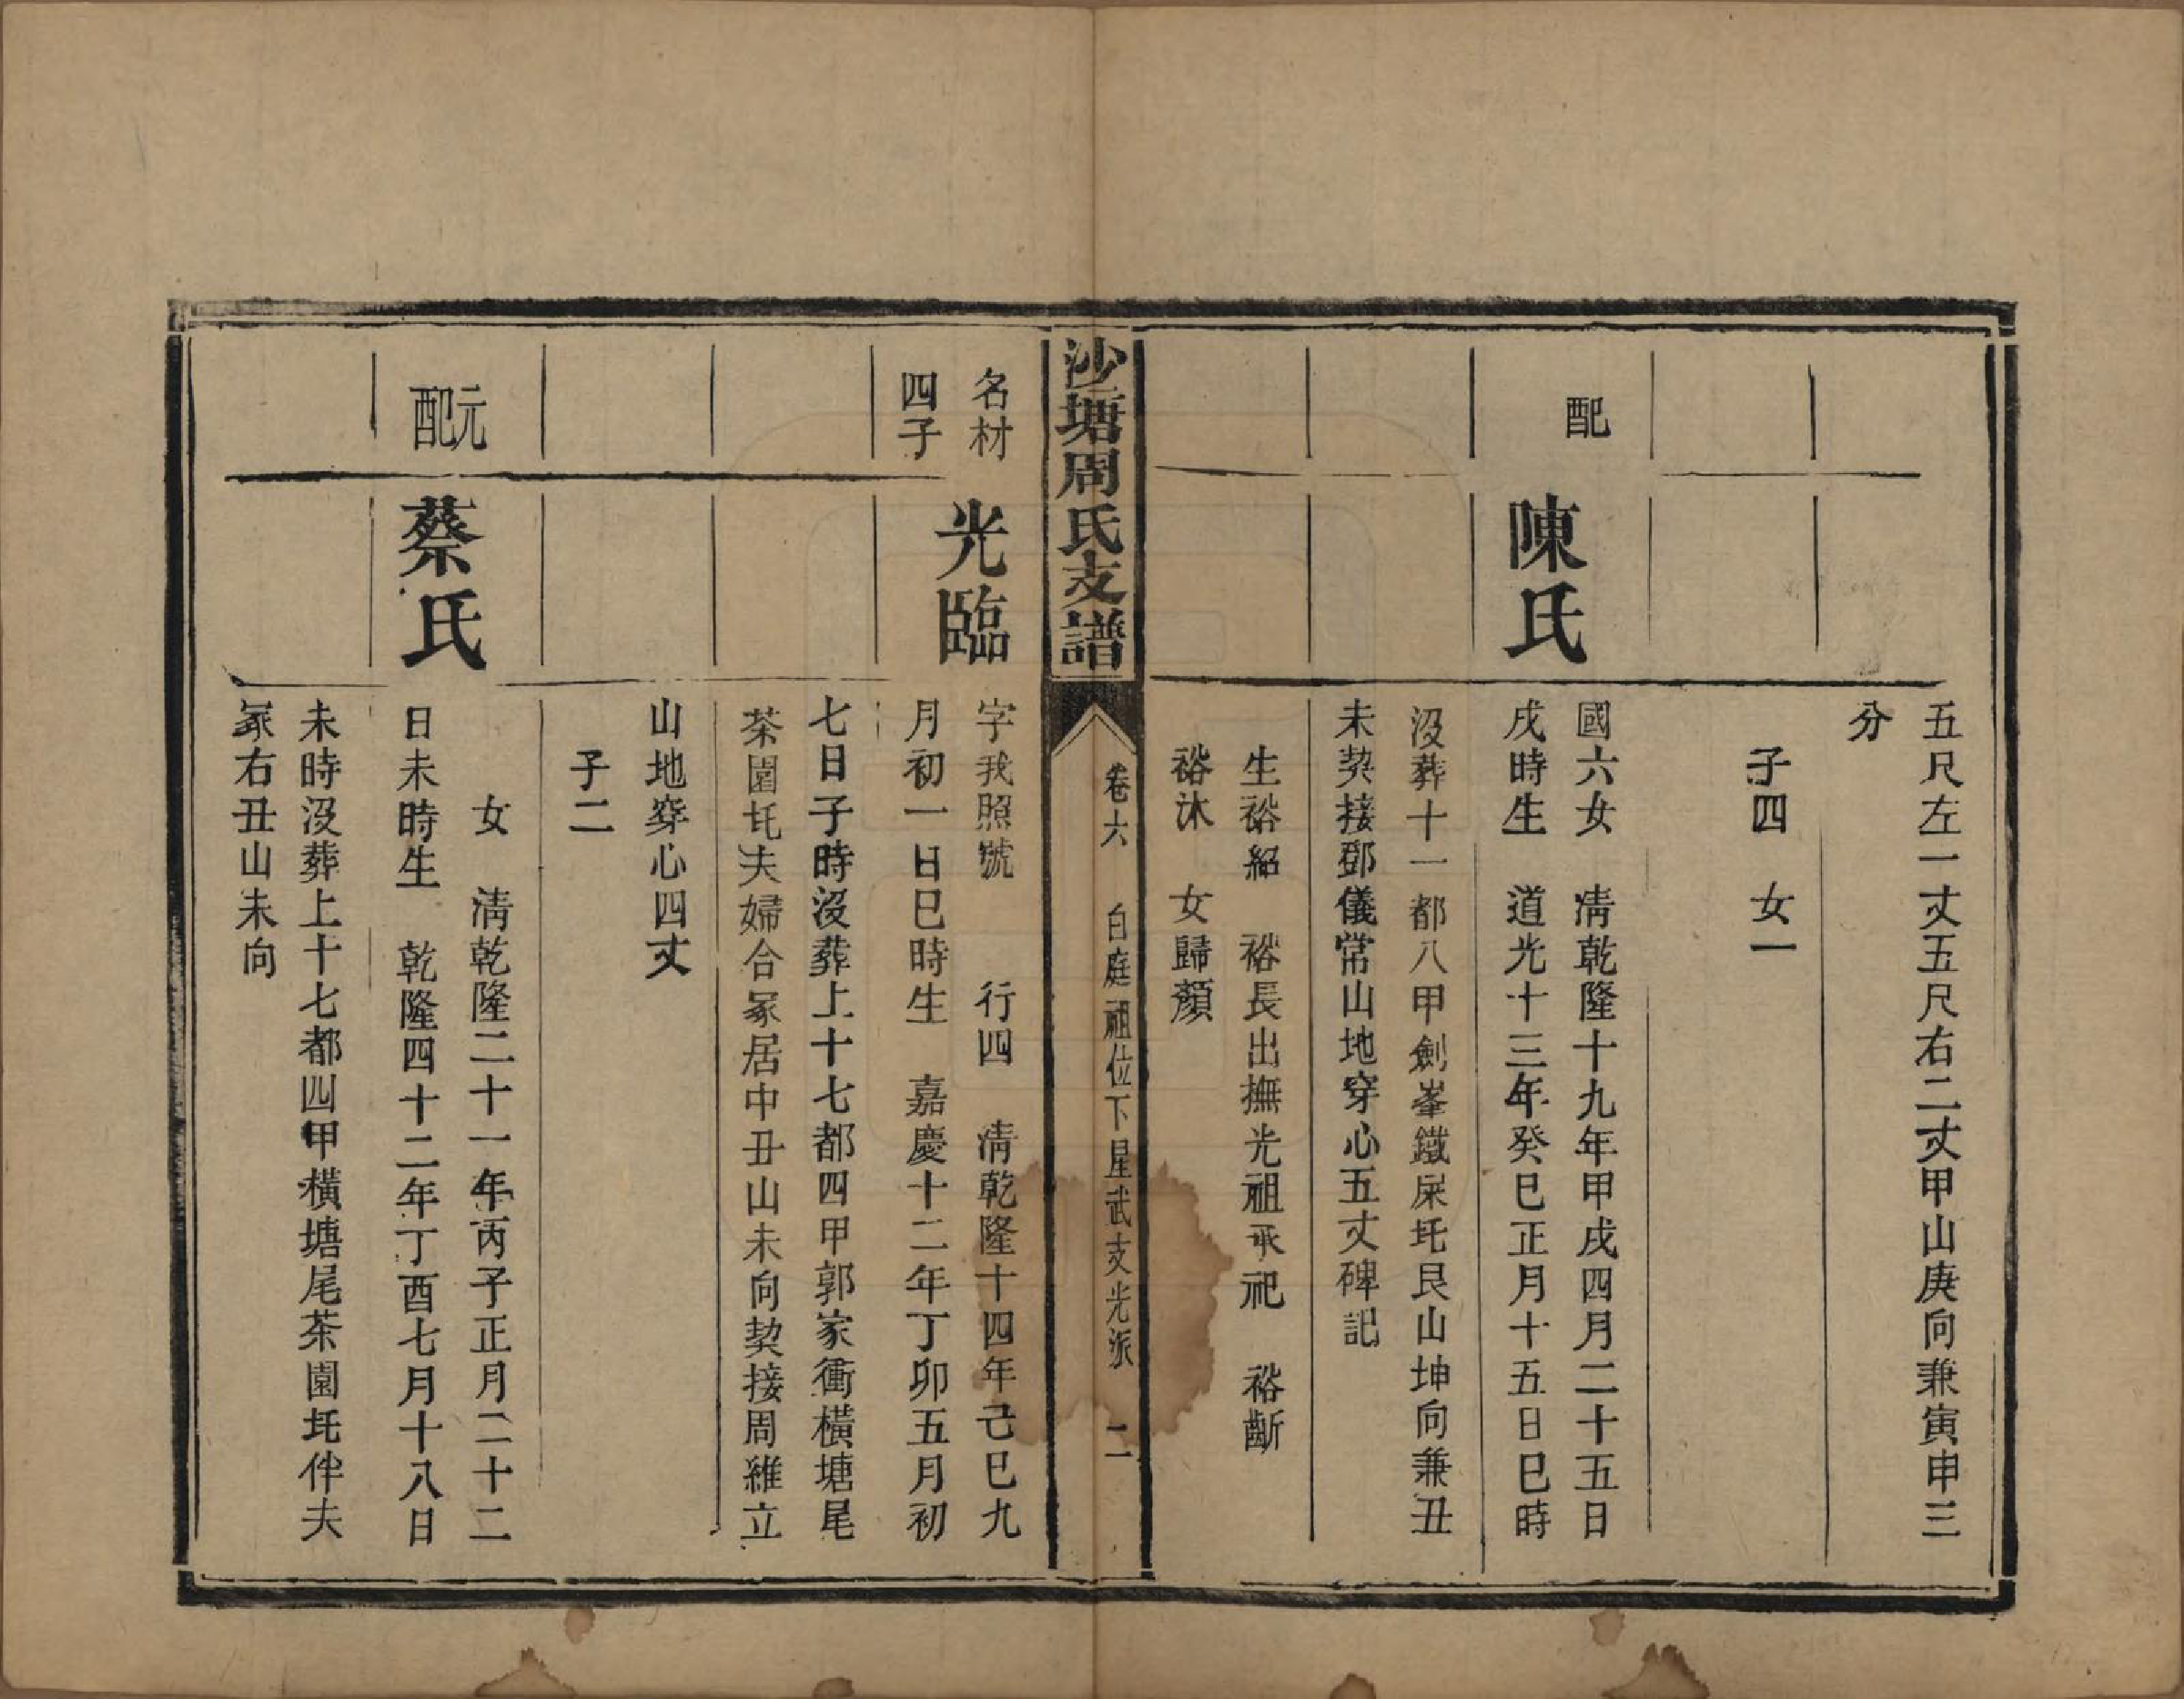 五尺左一丈五尺右二丈甲山庚向兼寅申三
分
子四　女一
配
陳氏
國六女　清乾隆十九年甲戌四月二十五日
戌時生　道光十三年癸巳正月十五日巳時
沒葬十一都八甲劍峯鐵屎圫艮山坤向兼丑
未契接鄧儀常山地穿心五丈碑記
生裕紹　裕長出撫光祖承祀　裕斷
裕沐　女歸顏
沙塘周氏支譜
卷六　白庭祖位下星武支光派　二
名材
四子
光臨
字我照號　　行四　清乾隆十四年己巳九
月初一日巳時生　嘉慶十二年丁卯五月初
七日子時沒葬上十七都四甲郭家衝橫塘尾
茶園圫夫婦合冢居中丑山未向契接周維立
山地穿心四丈
子二
元配
蔡氏
女　清乾隆二十一年丙子正月二十二
日未時生　乾隆四十二年丁酉七月十八日
未時沒葬上十七都四甲橫塘尾茶園圫伴夫
冢右丑山未向